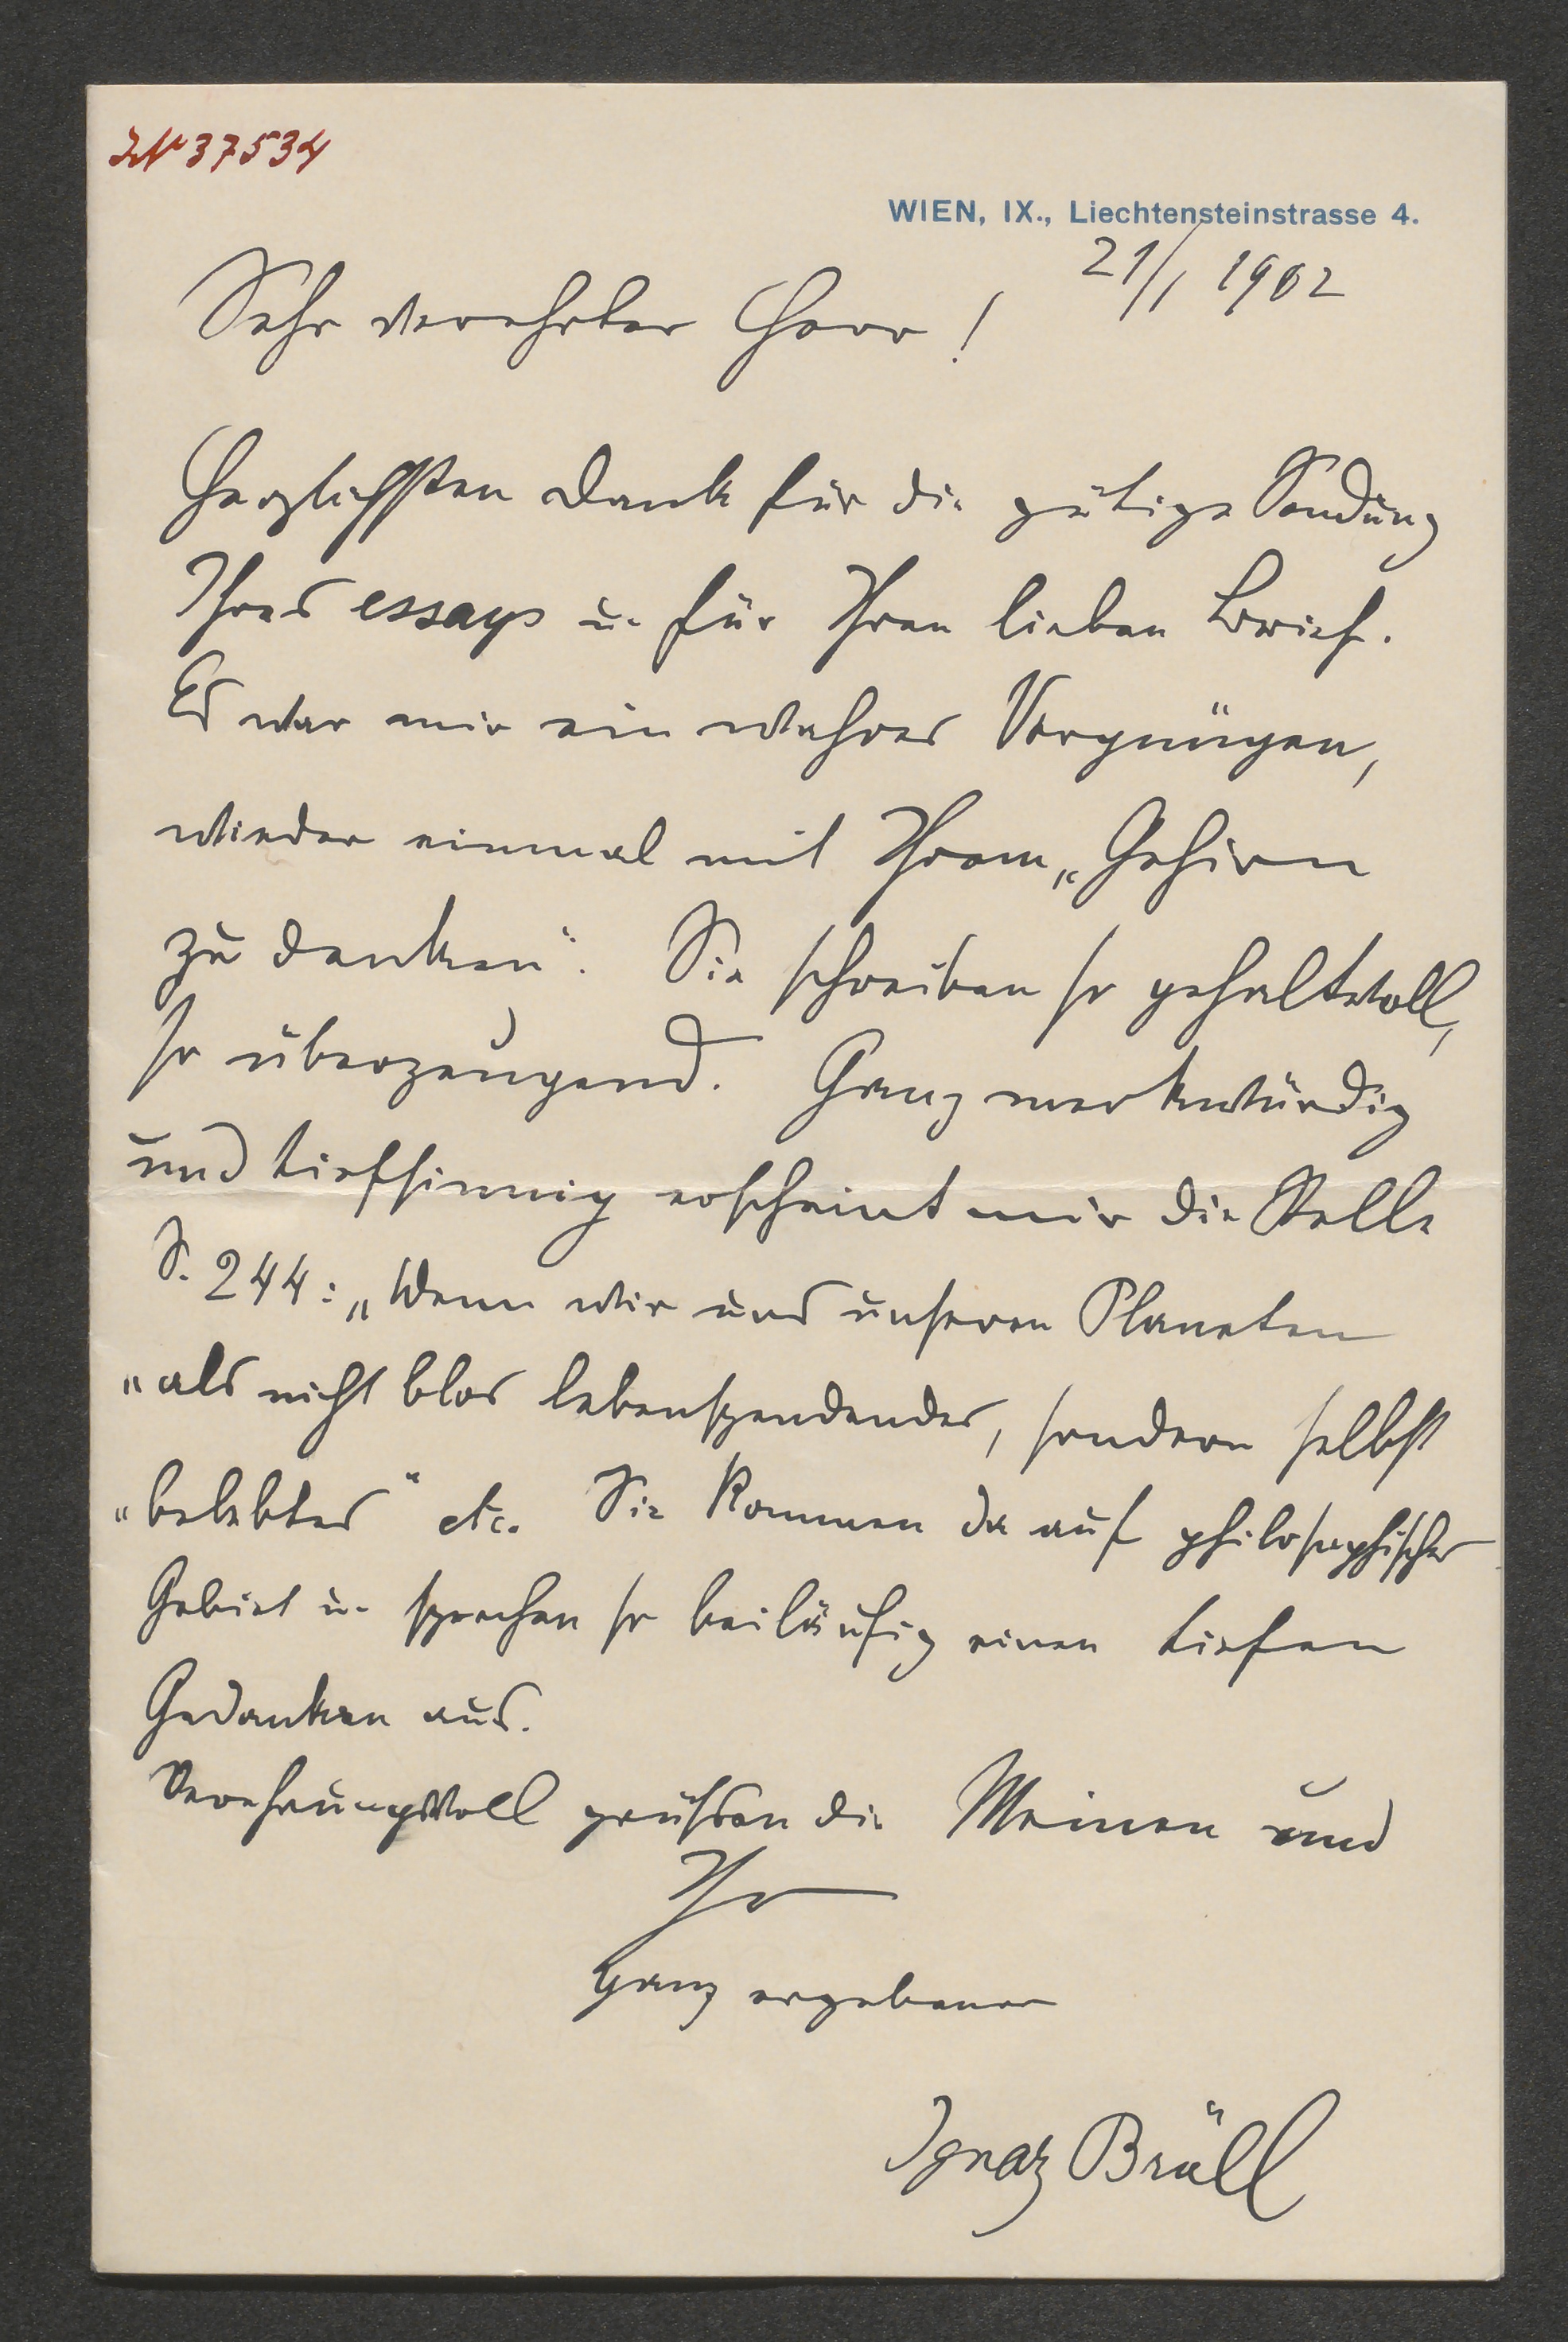 IN 37534
WIEN, IX., Liechtensteinstrasse 4.
21/1 1902
Sehr verehrter Herr!
Herzlichsten Dank für die gütige Sendung
Ihres essays u. für Ihren lieben Brief.
Es war mir ein wahres Vergnügen,
wieder einmal mit Ihrem „Gehirn
zu denken“. Sie schreiben so gehaltvoll,
so überzeugend. Ganz merkwürdig
und tiefsinnig erscheint mir die Stelle
S. 244: „Wenn wir uns unseren Planeten
„als nicht blos lebenspendendes, sondern selbst
„belebtes“ etc. Sie kommen da auf philosophisches
Gebiet u. sprechen so beiläufig einen tiefen
Gedanken aus.
Verehrungsvoll grüßen die Meinen und
Ihr
Ganz ergebener
Ignaz Brüll